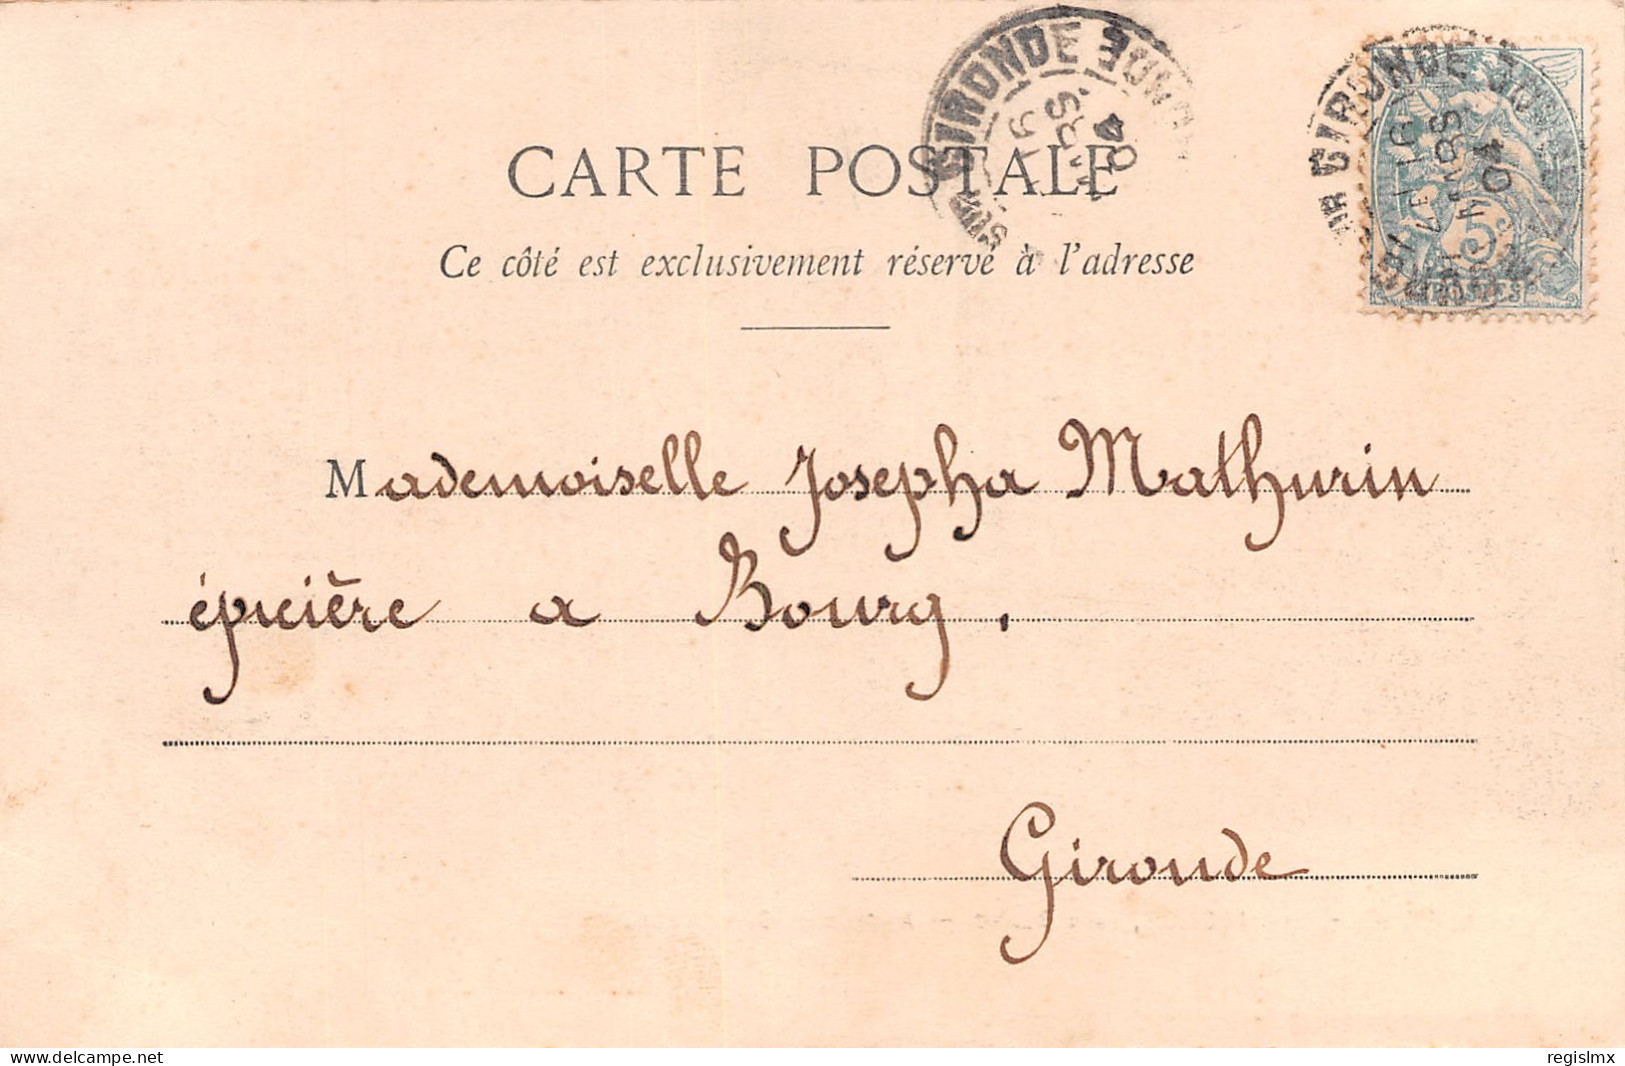 CARTE POSTALE
Ce côté est exclusivement réservé à l'adresse
GIRONDE
MARS
04
GIRONDE
MARS
04
5
POSTES
Mademoiselle Josepha Mathurin
épicière a Bourg.
Gironde
delcampe.net
regislmx